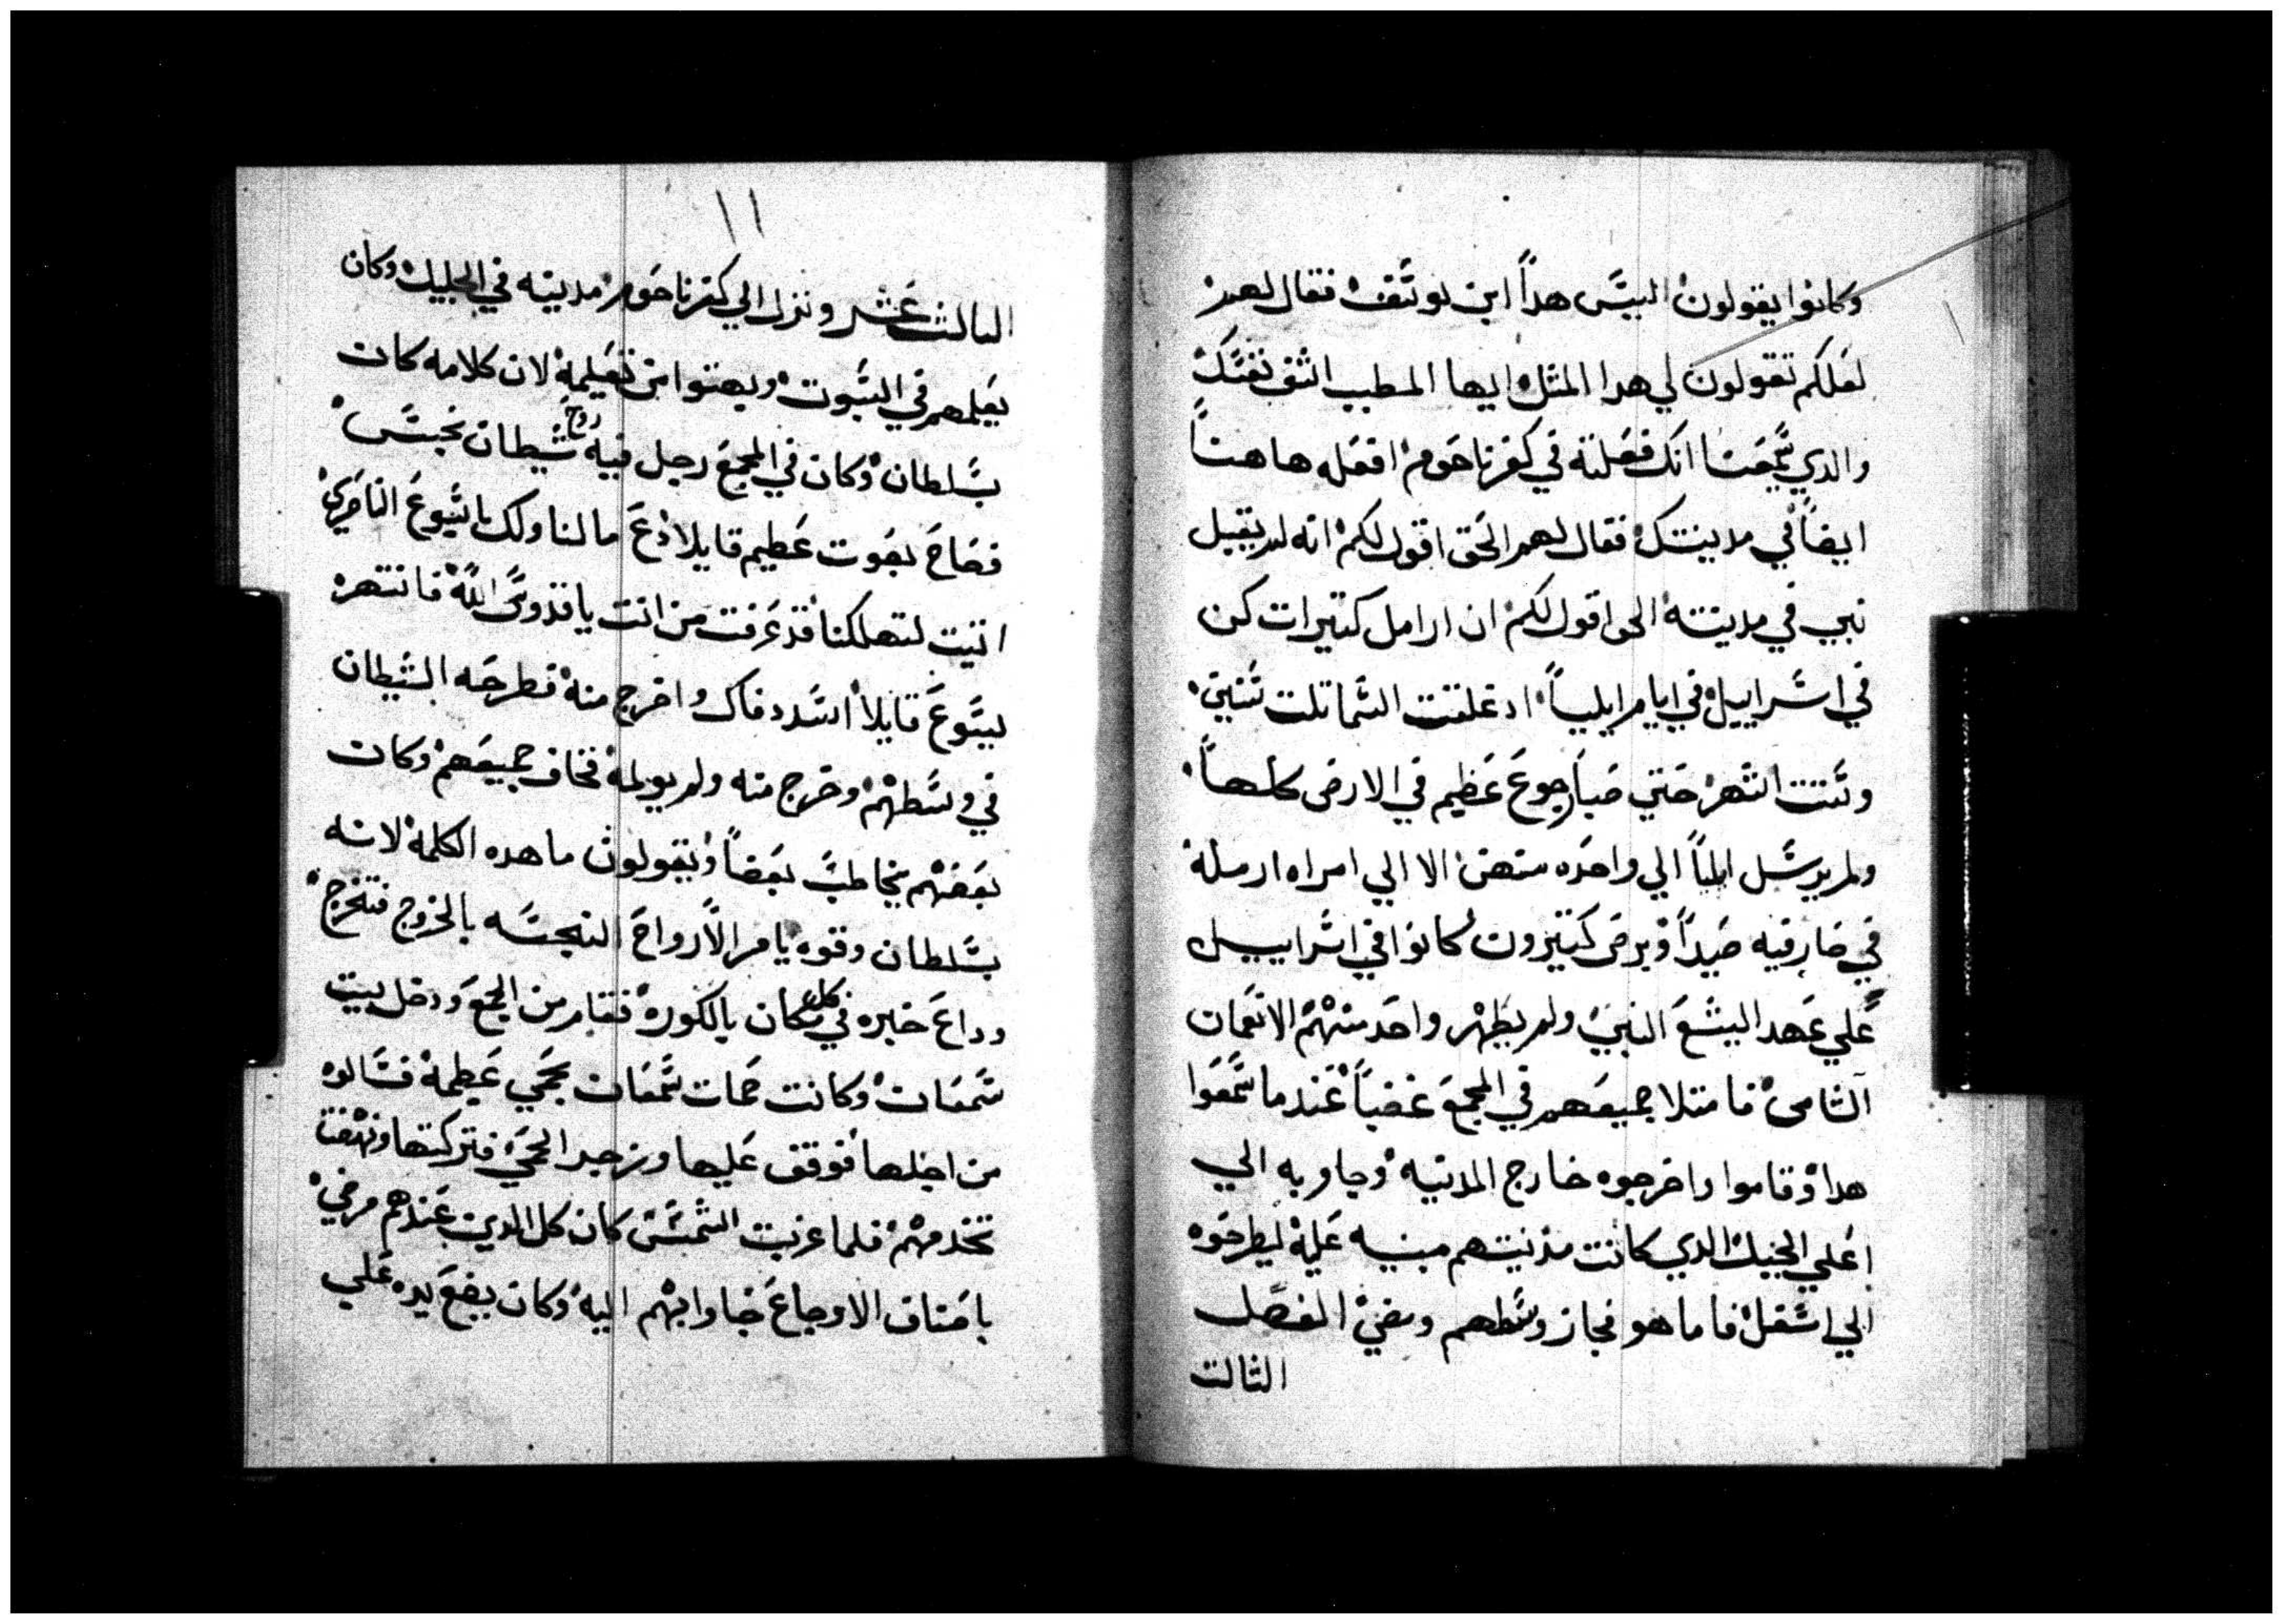 وكانوا يقولون اليس هدا ابن يوسف فقال لهم
لعلكم تقولون لي هدا المثل ايها المطبب اشف نفسك
والدي سمعنا انك فعلته في كفرناحوم افعله هاهنا
ايضا في مدينتك فقال لهم الحق اقول لكم انه لم يقبل
نبي في مدينته الحق اقول لكم ان ارامل كتيرات كن
في اسراييل في ايام ايليا اد غلقت السما تلت سنين
وستت اشهر حتي صار جوع عظيم في الارض كلها
ولم يرسل ايليا الي واحده منهن الا الي امراه ارمله
في صارفيه صيدا وبرص كتيرون كانوا في اسراييل
علي عهد اليشع النبي ولم يطهر واحد منهم الا نعمان
الشامي فامتلا جميعهم في المجمع غضبا عندما سمعوا
هدا وقاموا واخرجوه خارج المدينه وجاو به الي
اعلي الجبل الدي كانت مدينتهم مبنيه عليه ليطرحوه
الي اسفل فاما هو فجاز وسطهم ومضي الفصل
الثالت
١١
الثالث عشر ونزل الي كفرناحوم مدينه في الجليل وكان
يعلمهم في السبوت وبهتوا من تعليمه لان كلامه كان
بسلطان وكان في المجمع رجل فيه روح شيطان نجس
فصاح بصوت عظيم قايلا دع مالنا ولك يا يسوع الناصري
اتيت لتهلكنا قد عرفت من انت يا قدوس الله فانتهره
يسوع قايلا اسدد فاك واخرج منه فطرحه الشيطان
في وسطهم وخرج منه ولم يولمه فخاف جميعهم وكان
بعضهم يخاطب بعضا ويقولون ما هده الكلمه لانه
بسلطان وقوه يامر الارواح النجسه بالخروج فتخرج
وداع خبره في كل مكان بالكوره فقام من الجمع ودخل بيت
سمعان وكانت حمات سمعان بحمي عظيمه فسالوه
من اجلها فوقف عليها وزجر الحمي فتركتها ونهضت
تخدمهم فلما غربت الشمس كان كل الدين عندهم مرضي
باصناف الاوجاع جاوا بهم اليه وكان يضع يده علي